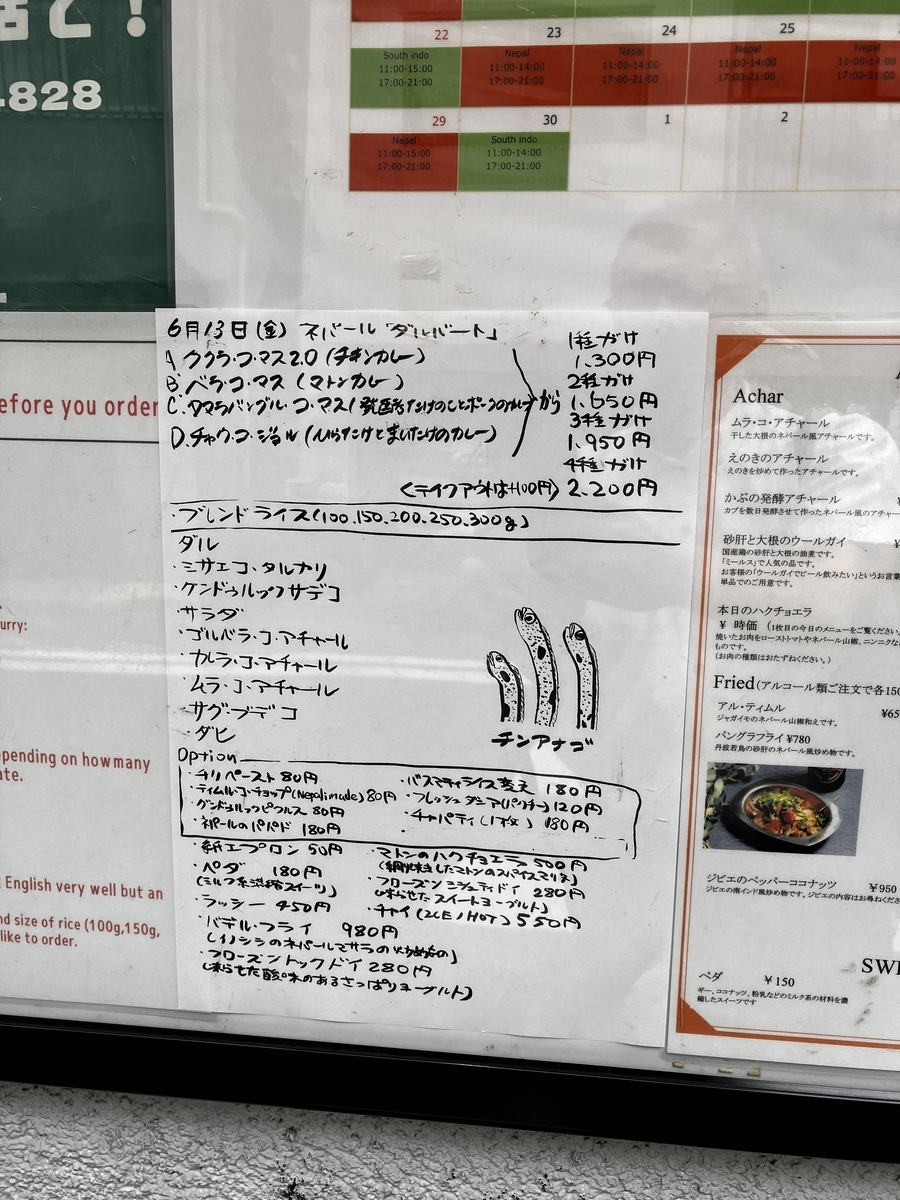 4828
22 23 24 25
South indo
11:00-15:00
17:00-21:00
Nepal
11:00-14:00
17:00-21:00
Nepal
11:00-14:00
17:00-21:00
Nepal
11:00-14:00
17:00-21:00
Nepal
11:00-14:00
17:00-21:00
29 30 1 2
Nepal
11:00-15:00
17:00-21:00
South indo
11:00-14:00
17:00-21:00
efore you order
urry:
epending on how many
ate.
English very well but an
nd size of rice (100g,150g,
like to order.
6月13日(金) ネパール「ダルバート」
A ククラ・コ・マス2.0 (チキンカレー)
B. ベラ・コ・マス (マトンカレー)
C. タマラバングル・コ・マス(発酵たけのことポークのカレー
D. チャウ・コ・ジョル (ひらたけとまいたけのカレー)
から
1種がけ
1,300円
2種がけ
1,650円
3種がけ
1,950円
4種がけ
2,200円
〈テイクアウトは+100円〉
・ブレンドライス(100.150.200.250.300g)
ダル
・ミサエコ・タルカリ
・サラダ
・ゴルベラ・コ・アチャール
・カレラ・コ・アチャール
・ムラ・コ・アチャール
・ダヒ
チンアナゴ
Option
・チリペースト 80円
・ティムル・コ・チョップ(Nepali made) 80円
80円
・ネパールのパパド 180円
・バスマティライス変更 180円
・フレッシュダニア(パクチー) 120円
・チャパティ(1枚) 180円
・紙エプロン 50円
・ペダ 180円
(ミルク系濃縮スイーツ)
・ラッシー 450円
・バデル・フライ 980円
(イノシシのネパールマサラの炒めもの)
・フローズントックドイ 280円
(凍らせた酸味のあるさっぱりヨーグルト)
・マトンのハクチョエラ 500円
(網焼きしたマトンのスパイスマリネ)
・フローズンミシュティドイ 280円
(凍らせたスイートヨーグルト)
・チャイ(ICE/HOT) 550円
Achar
ムラ・コ・アチャール
干した大根のネパール風アチャールです。
えのきのアチャール
えのきを炒めて作ったアチャールです。
かぶの発酵アチャール
カブを数日発酵させて作ったネパール風のアチャー
砂肝と大根のウールガイ
国産鶏の砂肝と大根の油煮です。
「ミールス」で人気の品です。
お客様の「ウールガイでビール飲みたい」というお言葉
単品でのご用意です。
本日のハクチョエラ
¥ 時価 (1枚目の今日のメニューをご覧ください。
焼いたお肉をローストトマトやネパール山椒、ニンニクな
ものです。
(お肉の種類はおたずねください。)
Fried(アルコール類ご注文で各150
アル・ティムル
¥65
ジャガイモのネパール山椒和えです。
パングラフライ ¥780
丹波若鳥の砂肝のネパール風炒め物です。
ジビエのペッパーココナッツ ¥950
ジビエの南インド風炒め物です。ジビエの内容はお尋ねくださ
SWE
ペダ ¥150
ギー、ココナッツ、粉乳などのミルク系の材料を濃
縮したスイーツです